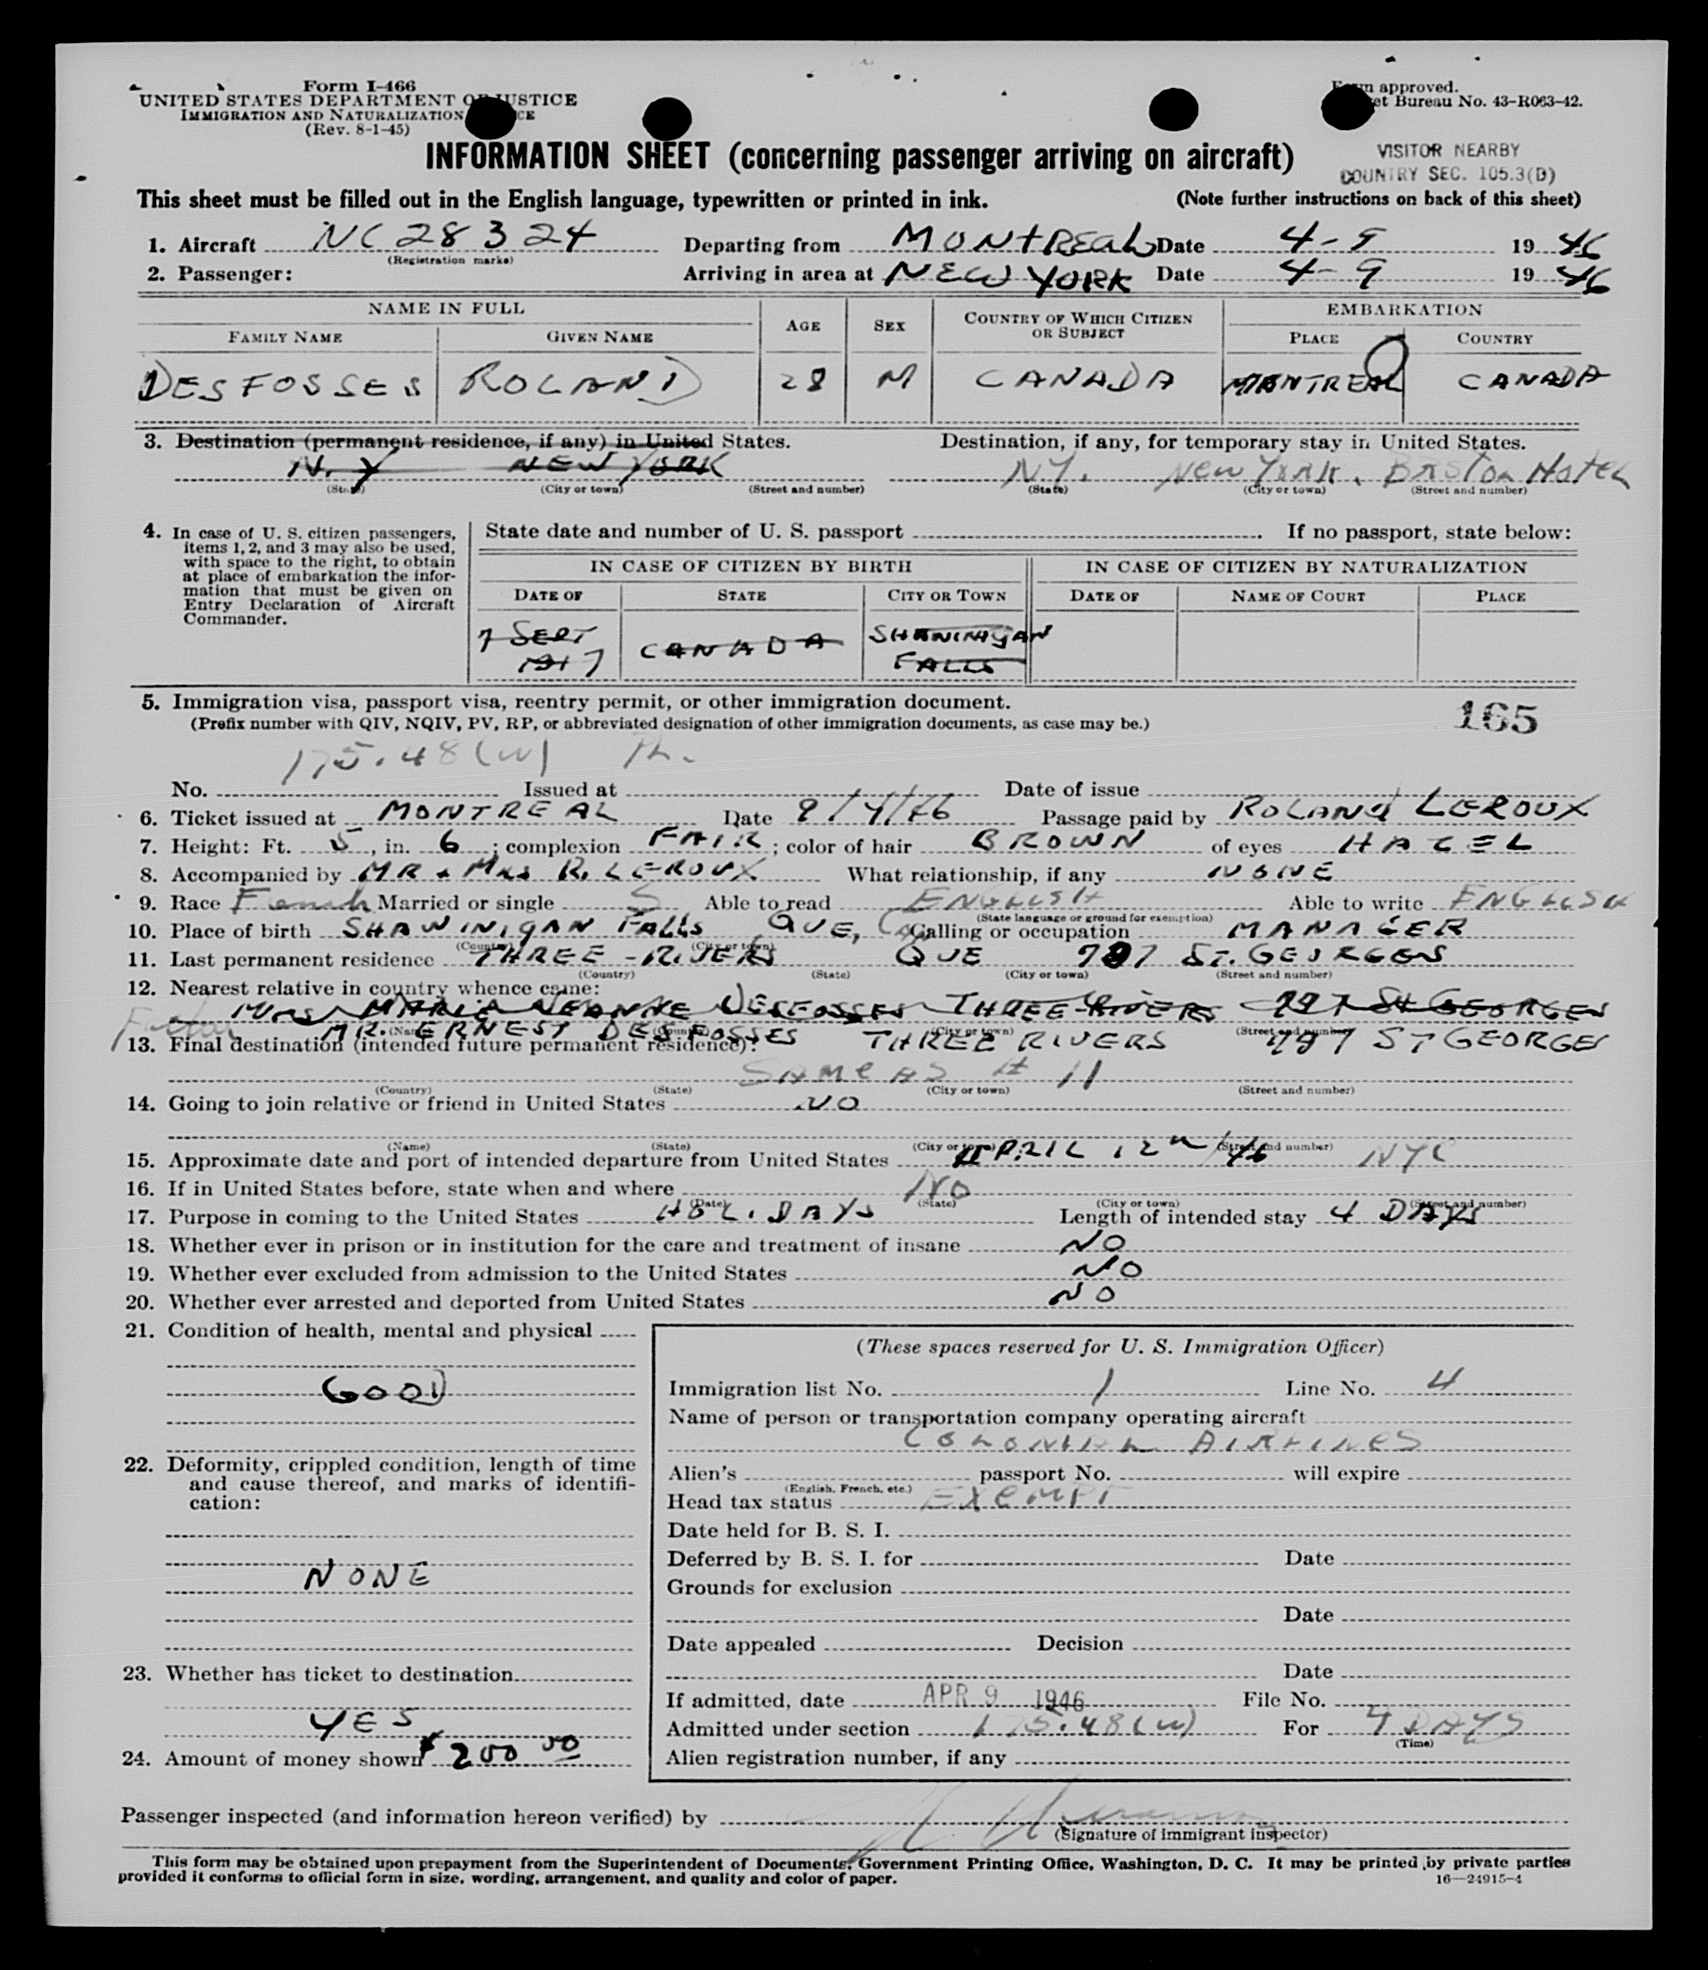 Form I-466
UNITED STATES DEPARTMENT OF JUSTICE
IMMIGRATION AND NATURALIZATION
(Rev. 8-1-45)
approved.
Bureau No. 43-R063-42.
INFORMATION SHEET (concerning passenger arriving on aircraft)
VISITOR NEARBY
COUNTRY SEC. 105.3(D)
This sheet must be filled out in the English language, typewritten or printed in ink. (Note further instructions on back of this sheet)
1. Aircraft NC 28324 Departing from MONTREAL Date 4-9 1946
(Registration marks)
2. Passenger: Arriving in area at NEW YORK Date 4-9 1946
NAME IN FULL AGE SEX COUNTRY OF WHICH CITIZEN OR SUBJECT EMBARKATION
FAMILY NAME GIVEN NAME PLACE COUNTRY
DESFOSSES ROLAND 28 M CANADA MONTREAL CANADA
3. Destination (permanent residence, if any) in United States. Destination, if any, for temporary stay in United States.
N.Y NEW YORK NY. New York. Hotel
(State) (City or town) (Street and number) (State) (City or town) (Street and number)
4. In case of U. S. citizen passengers, items 1, 2, and 3 may also be used, with space to the right, to obtain at place of embarkation the information that must be given on Entry Declaration of Aircraft Commander.
State date and number of U. S. passport If no passport, state below:
IN CASE OF CITIZEN BY BIRTH IN CASE OF CITIZEN BY NATURALIZATION
DATE OF STATE CITY OR TOWN DATE OF NAME OF COURT PLACE
7 SEPT CANADA SHAWINIGAN
1917 FALLS
5. Immigration visa, passport visa, reentry permit, or other immigration document.
(Prefix number with QIV, NQIV, PV, RP, or abbreviated designation of other immigration documents, as case may be.)
165
175.48(W)
No. Issued at Date of issue
6. Ticket issued at MONTREAL Date 9/4/46 Passage paid by ROLAND LEROUX
7. Height: Ft. 5, in. 6; complexion FAIR; color of hair BROWN of eyes HAZEL
8. Accompanied by MR & MRS R. LEROUX What relationship, if any NONE
9. Race French Married or single S Able to read ENGLISH Able to write ENGLISH
(State language or ground for exemption)
10. Place of birth SHAWINIGAN FALLS QUE, Can Calling or occupation MANAGER
(Country) (City or town)
11. Last permanent residence THREE-RIVERS QUE 797 ST. GEORGES
(Country) (State) (City or town) (Street and number)
12. Nearest relative in country whence came:
Mrs MARIA JEANNE DESFOSSES THREE-RIVERS 797 St GEORGES
Father MR. ERNEST DESFOSSES THREE RIVERS 797 ST GEORGES
(Name) (Country) (City or town) (Street and number)
13. Final destination (intended future permanent residence):
SAME AS # 11
(Country) (State) (City or town) (Street and number)
14. Going to join relative or friend in United States NO
(Name) (State) (City or town) (Street and number)
15. Approximate date and port of intended departure from United States APRIL 12th/46 NYC
16. If in United States before, state when and where NO
(Date) (State) (City or town) (Street and number)
17. Purpose in coming to the United States HOLIDAYS Length of intended stay 4 DAYS
18. Whether ever in prison or in institution for the care and treatment of insane NO
19. Whether ever excluded from admission to the United States NO
20. Whether ever arrested and deported from United States NO
21. Condition of health, mental and physical
GOOD
22. Deformity, crippled condition, length of time
and cause thereof, and marks of identifi-
cation:
NONE
23. Whether has ticket to destination
YES
24. Amount of money shown $200.00
(These spaces reserved for U. S. Immigration Officer)
Immigration list No. 1 Line No. 4
Name of person or transportation company operating aircraft
COLONIAL AIRLINES
Alien's passport No. will expire
(English, French, etc.)
Head tax status EXEMPT
Date held for B. S. I.
Deferred by B. S. I. for Date
Grounds for exclusion
Date
Date appealed Decision
Date
If admitted, date APR 9 1946 File No.
Admitted under section 175.48(W) For 4 DAYS
(Time)
Alien registration number, if any
Passenger inspected (and information hereon verified) by
(Signature of immigrant inspector)
This form may be obtained upon prepayment from the Superintendent of Documents, Government Printing Office, Washington, D. C. It may be printed by private parties
provided it conforms to official form in size, wording, arrangement, and quality and color of paper.
16—24915-4